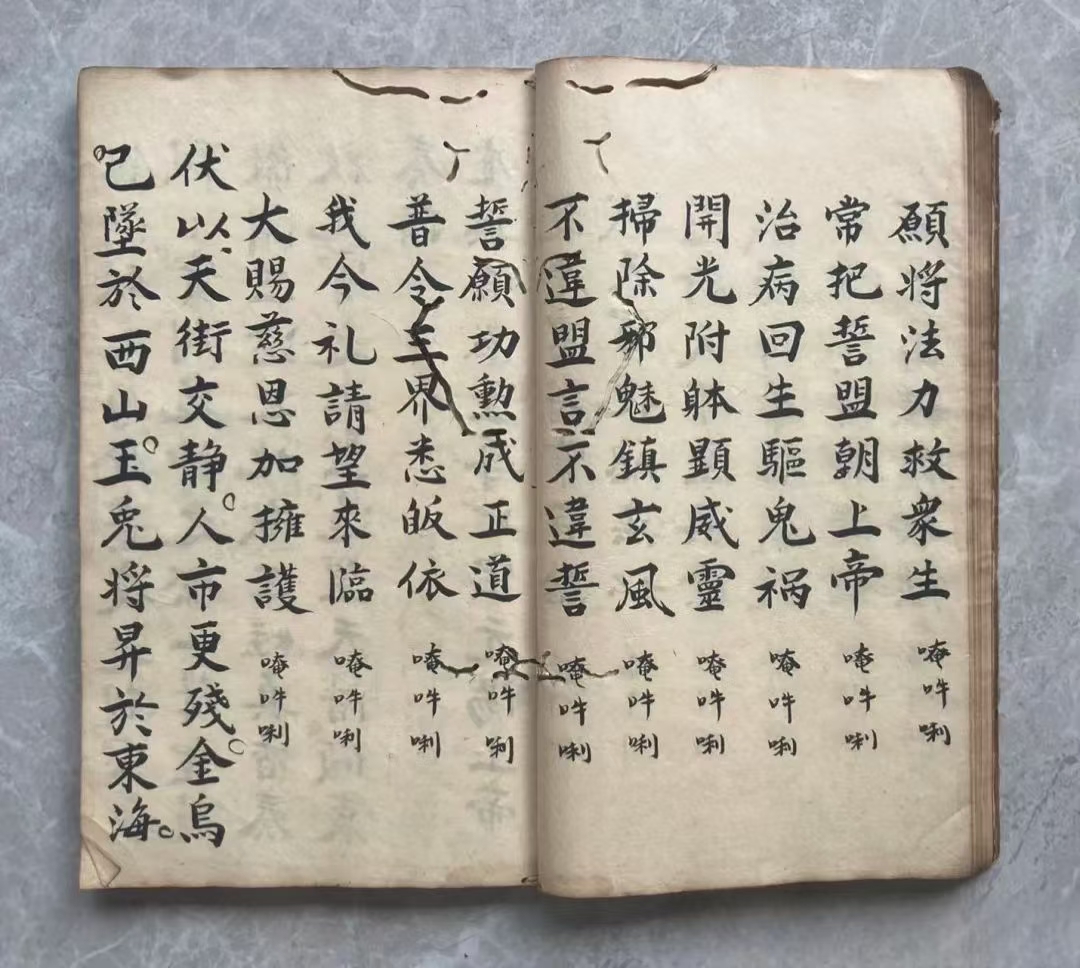 願將法力救衆生 唵吽唎
常把誓盟朝上帝 唵吽唎
治病回生驅鬼祸 唵吽唎
開光附躰顕威靈 唵吽唎
掃除邪魅鎮玄風 唵吽唎
不違盟言不違誓 唵吽唎
誓願功勲成正道 唵吽唎
普令三界悉皈依 唵吽唎
我今礼請望來臨 唵吽唎
大賜慈恩加擁護 唵吽唎
伏以、天街交静。人市更殘。金烏
已墜於西山。玉兎将昇於東海。